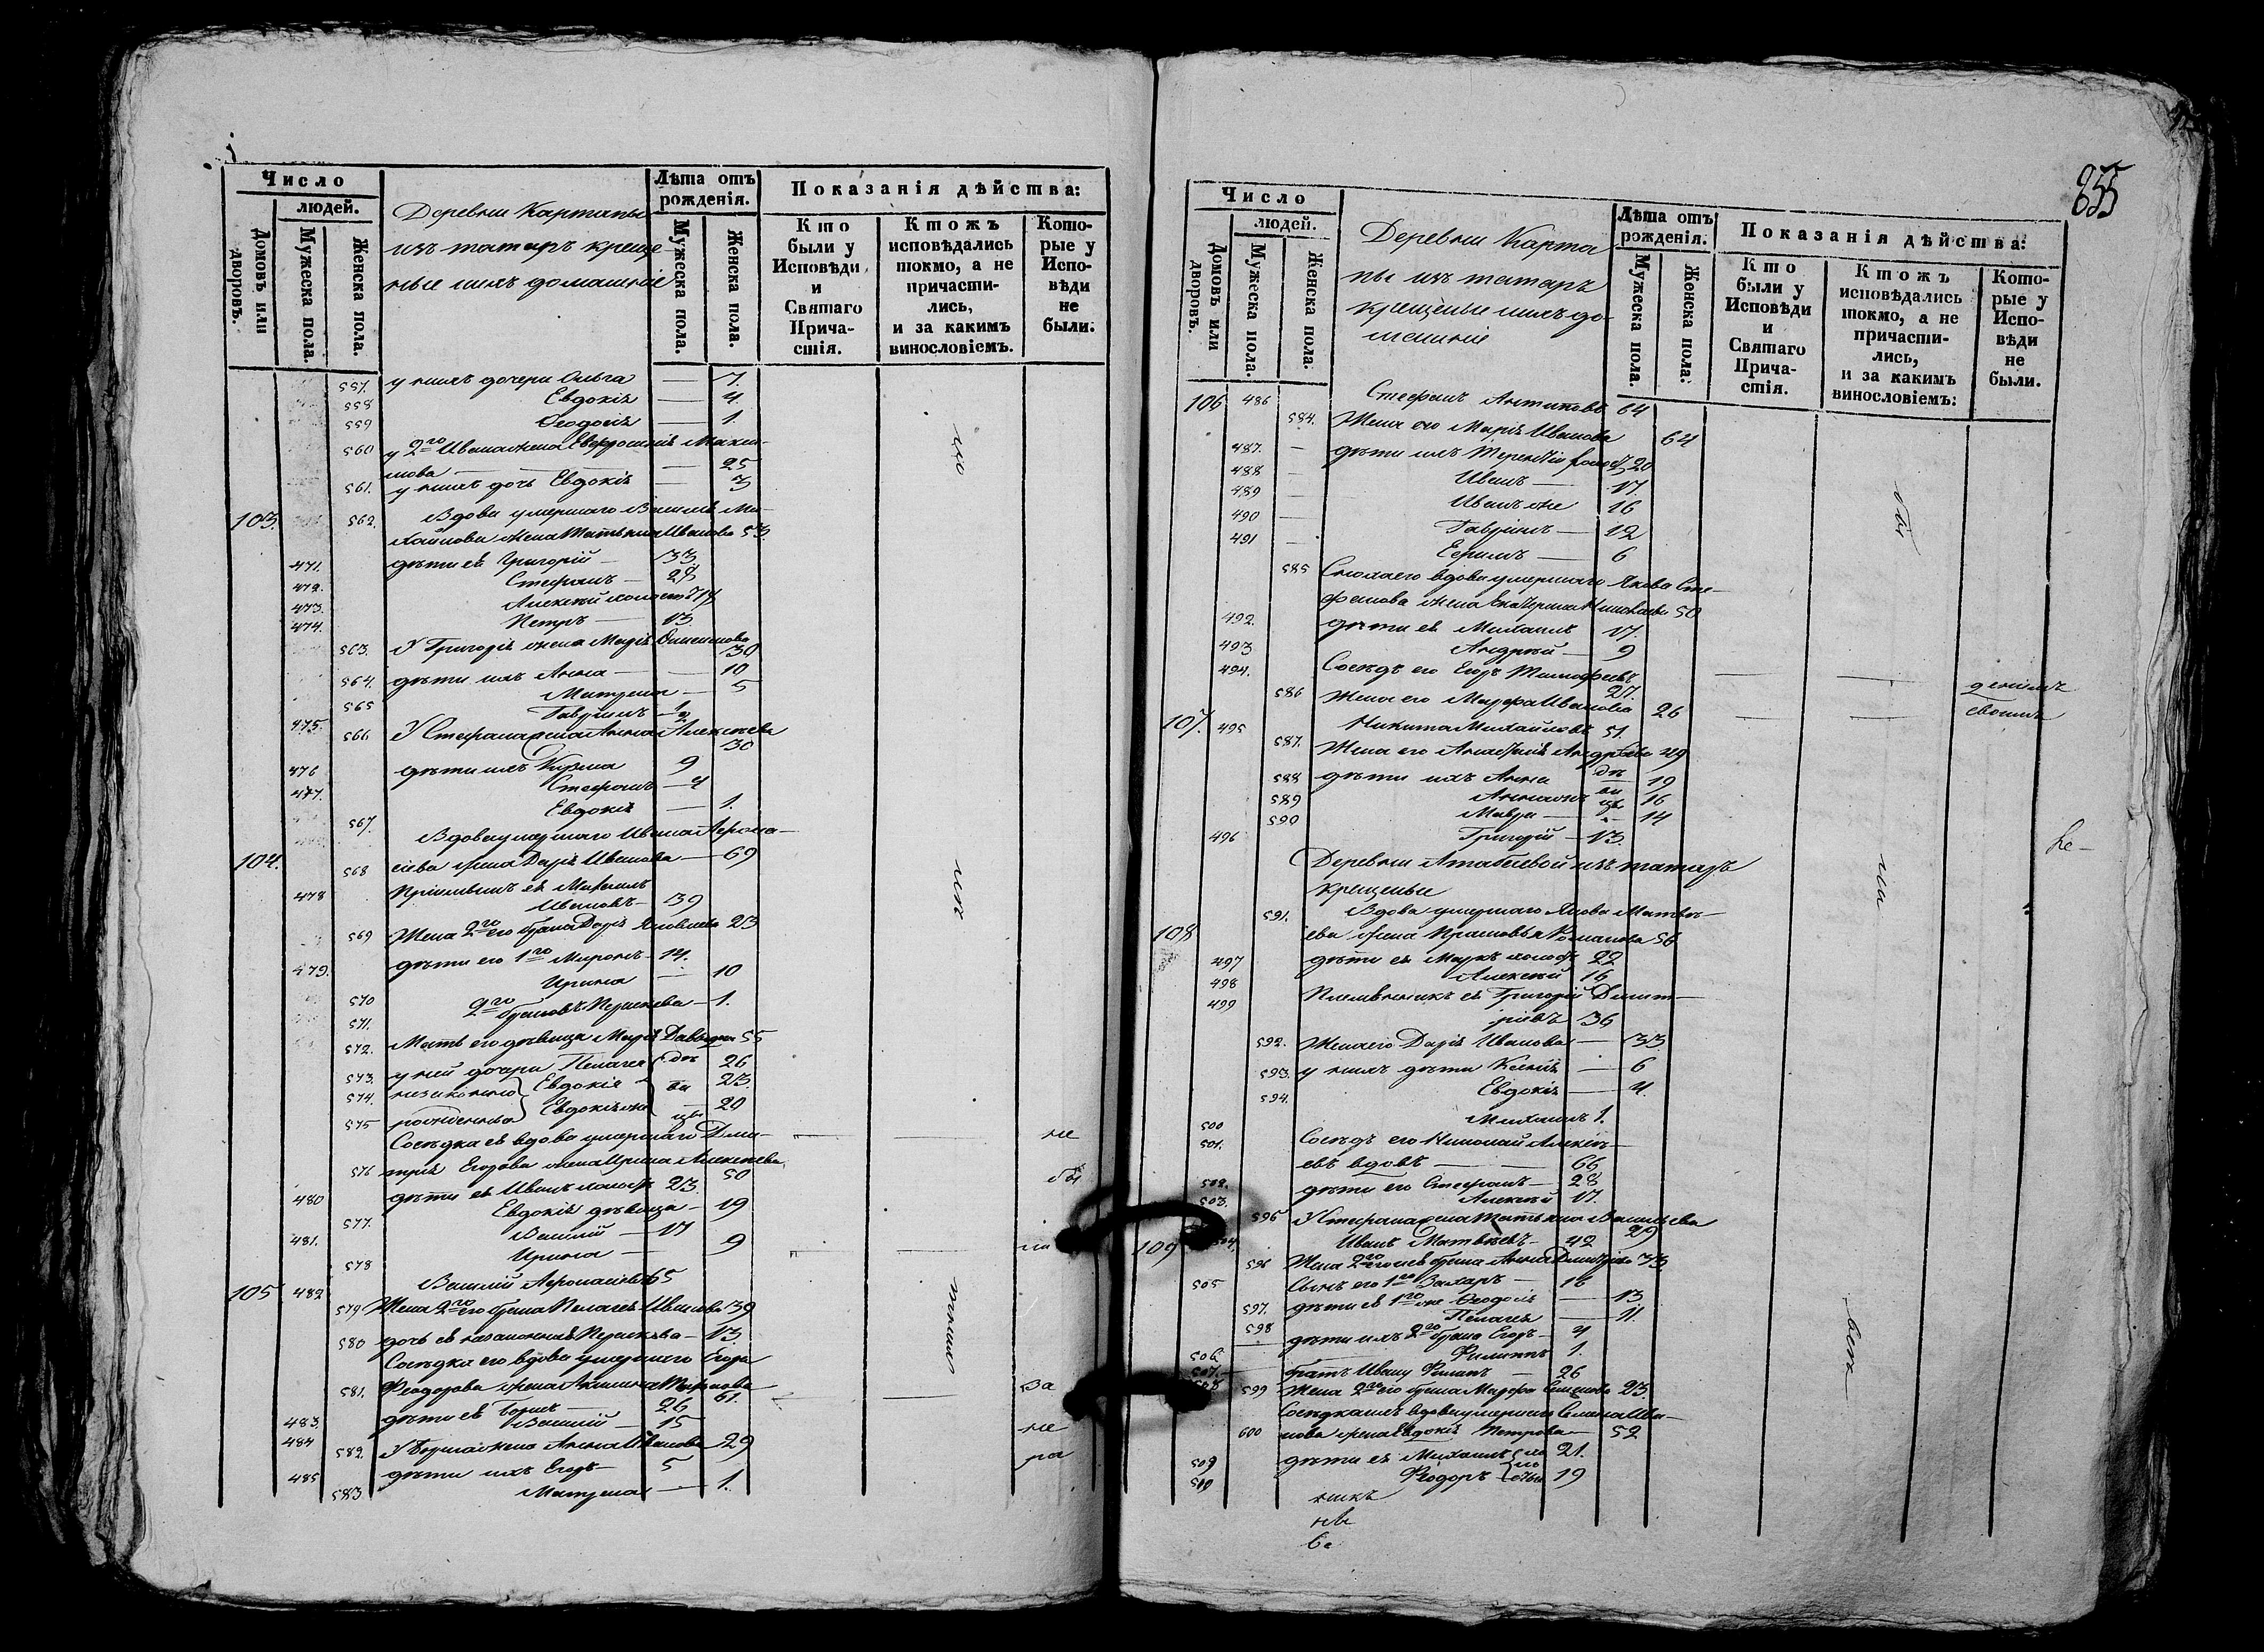 Число
людей.
Домовъ или дворовъ.
Мужеска пола.
Женска пола.
Деревни Картапы
изъ татаръ креще-
ные ихъ домашніе
Лѣта отъ рожденія.
Мужеска пола.
Женска пола.
Показанія дѣйства:
Кто были у Исповѣди и Святаго Причастія.
Ктожъ исповѣдались токмо, а не причастились, и за какимъ винословіемъ.
Которые у Исповѣди не были.
557. у нихъ дочери Ольга — 7.
558 Евдокія — 4.
559 Ѳеодосія — 1.
560 у 2го Ивана жена Евфросинія Макси-
мова — 25
561. у нихъ дочь Евдокія — 3
103. 562. Вдова умершаго Василья Ми-
хайлова жена Татьяна Иванова 53
471. дѣти ея Григорій — 33
472. Стефанъ — 27
473. Алексѣй холостъ 18
474. Петръ — 13.
563. У Григорія жена Марія
30
564. дѣти ихъ Анна — 10
565 Матрона — 5
475. Гавріилъ — 1/2
566 У Стефана жена Анна Алексѣева
30
476 дѣти ихъ Кузма 9
477. Стефанъ — 4
567. Евдокія — 1.
Вдова умершаго Ивана Афона-
104. 568 сіева жена Дарія Иванова — 69
478 ея
Ивановъ — 39
569 Жена 2го его брака Дарія Яковлева 23
479. дѣти его 1го Миронъ — 14.
570 Ирина — 10
571. 2го браковъ Параскева — 1.
572. Мать его дѣвица Марія Давыдова 55
573. у ней дочери Пелагея дѣ 26
574. незаконно Евдокія ви 23.
575 рожденныя Евдокія же цы 20
Сосѣдка ея вдова умершаго Дми- — — не
576 трія Егорова жена Ирина Алексѣева 50
480 дѣти ея Иванъ холостъ 23. бы
577. Евдокія дѣвица — 19
481. Василій — 17
578 Ирина — 9 — ли
105 482 Василій Афонасіевъ 65
579 Жена 2го его брака Пелагея Иванова 39
580 дочь ея незаконная Параскева — 13
Сосѣдка его вдова умершаго Егора
581. Феодорова жена Акилина 61. — за
483. дѣти ея Борисъ — 26
484 Василій — 15 не
582. У Бориса жена Анна Иванова 29
485 дѣти ихъ Егоръ — 5 ра
583 Матрона — 1.
855
Число
людей.
Домовъ или дворовъ.
Мужеска пола.
Женска пола:
Деревни Карта
пы изъ татаръ
крещеные ихъ до-
машніе
Лѣта отъ рожденія.
Мужеска пола.
Женска пола.
Показанія дѣйства:
Кто были у Исповѣди и Святаго Причастія.
Ктожъ исповѣдались токмо, а не причастились, и за какимъ винословіемъ:
Которые у Исповѣди не были.
106 486 Стефанъ Антиповъ 64
584. Жена его Марія Иванова 64
487. — дѣти ихъ Терентій холостъ 20
488 — Иванъ — 17.
489 — Иванъ же 16
490 — Гавріилъ — 12
491 — Ефимъ — 6
585 Сноха его вдова умершаго Якова Сте-
фанова жена Екатерина Николаева 50
492. дѣти ея Михаилъ 17.
493 Андрей — 9
494. Сосѣдъ его Егоръ Тимофеевъ
27. — —
586 Жена его Марфа Иванова 26 — —
107. 495 Никита Михайловъ 51.
587. Жена его Анастасія Андреева 49
588 дѣти ихъ Анна дѣ 19
589 ви 16
590 Мавра — цы 14
496 Григорій — 13.
Деревни Атабаевой изъ татаръ
крещеные
591. Вдова умершаго Якова Матвѣ-
108 ева жена Прасковья Романова 56
497 дѣти ея Маркъ холостъ 22
498 Алексѣй 16
499 Племянникъ ея Григорій Димит-
ріевъ 36
592. Жена его Дарія Иванова — 33
593. у нихъ дѣти Ксенія — 6
594. Евдокія — 4.
500 Михаилъ 1.
501. Сосѣдъ его Николай Алексѣ-
евъ вдовъ — 66
502. дѣти его Стефанъ — 28
503. Алексѣй 17.
595 У Стефана жена Татьяна Васильева
29
109 504. Иванъ Матвѣевъ — 42
596 Жена 2го его брака Анна Димитріева 33
505 Сынъ его 1го Захаръ — 16
597. дѣти ея 1го же Ѳеодосія — 13
598 Пелагея — 11.
дѣти ихъ 2го брака Егоръ — 4
506 Филиппъ 1.
507. братъ Ивану Филипъ — 26
599 Жена 2го его брака Марфа Семенова 23.
Сосѣдка ихъ вдова умершаго Семена Ива-
600 нова жена Евдокія Петрова — 52
509 дѣти ея Михаилъ 21.
510 Ѳеодоръ 19